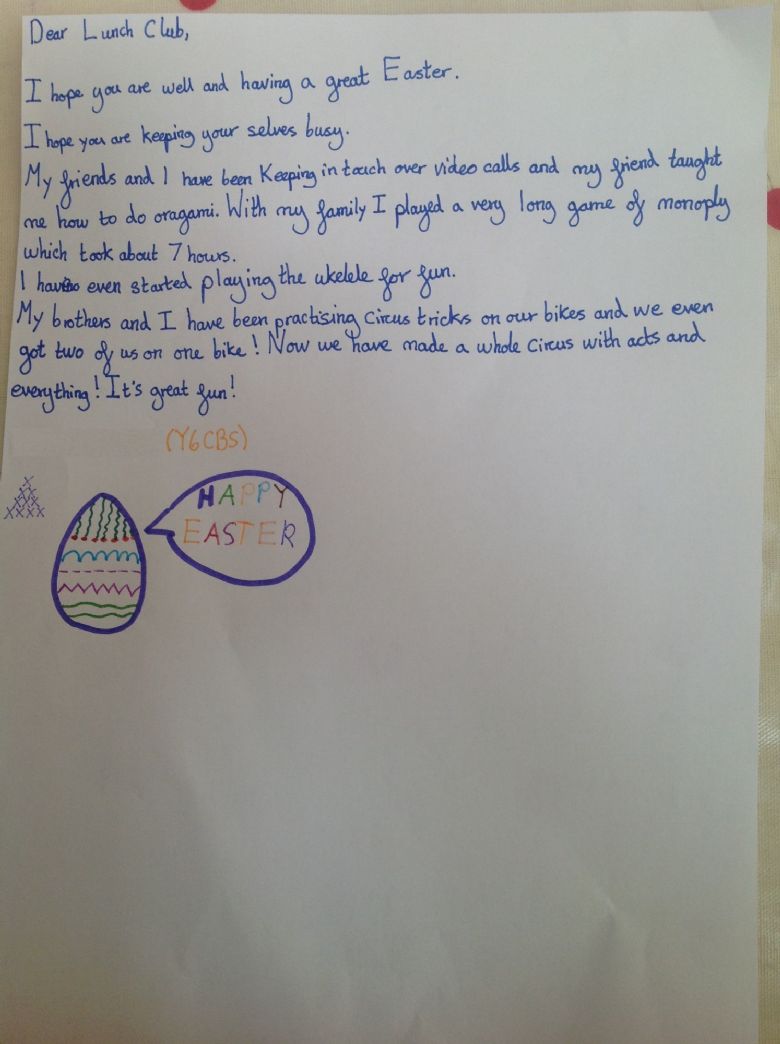 Dear Lunch Club,
I hope you are well and having a great Easter.
I hope you are keeping your selves busy.
My friends and I have been Keeping in touch over video calls and my friend taught
me how to do oragami. With my family I played a very long game of monoply
which took about 7 hours.
I have even started playing the ukelele for fun.
My brothers and I have been practising Circus tricks on our bikes and we even
got two of us on one bike! Now we have made a whole Circus with acts and
everything! It's great fun!
(Y6CBS)
HAPPY
EASTER